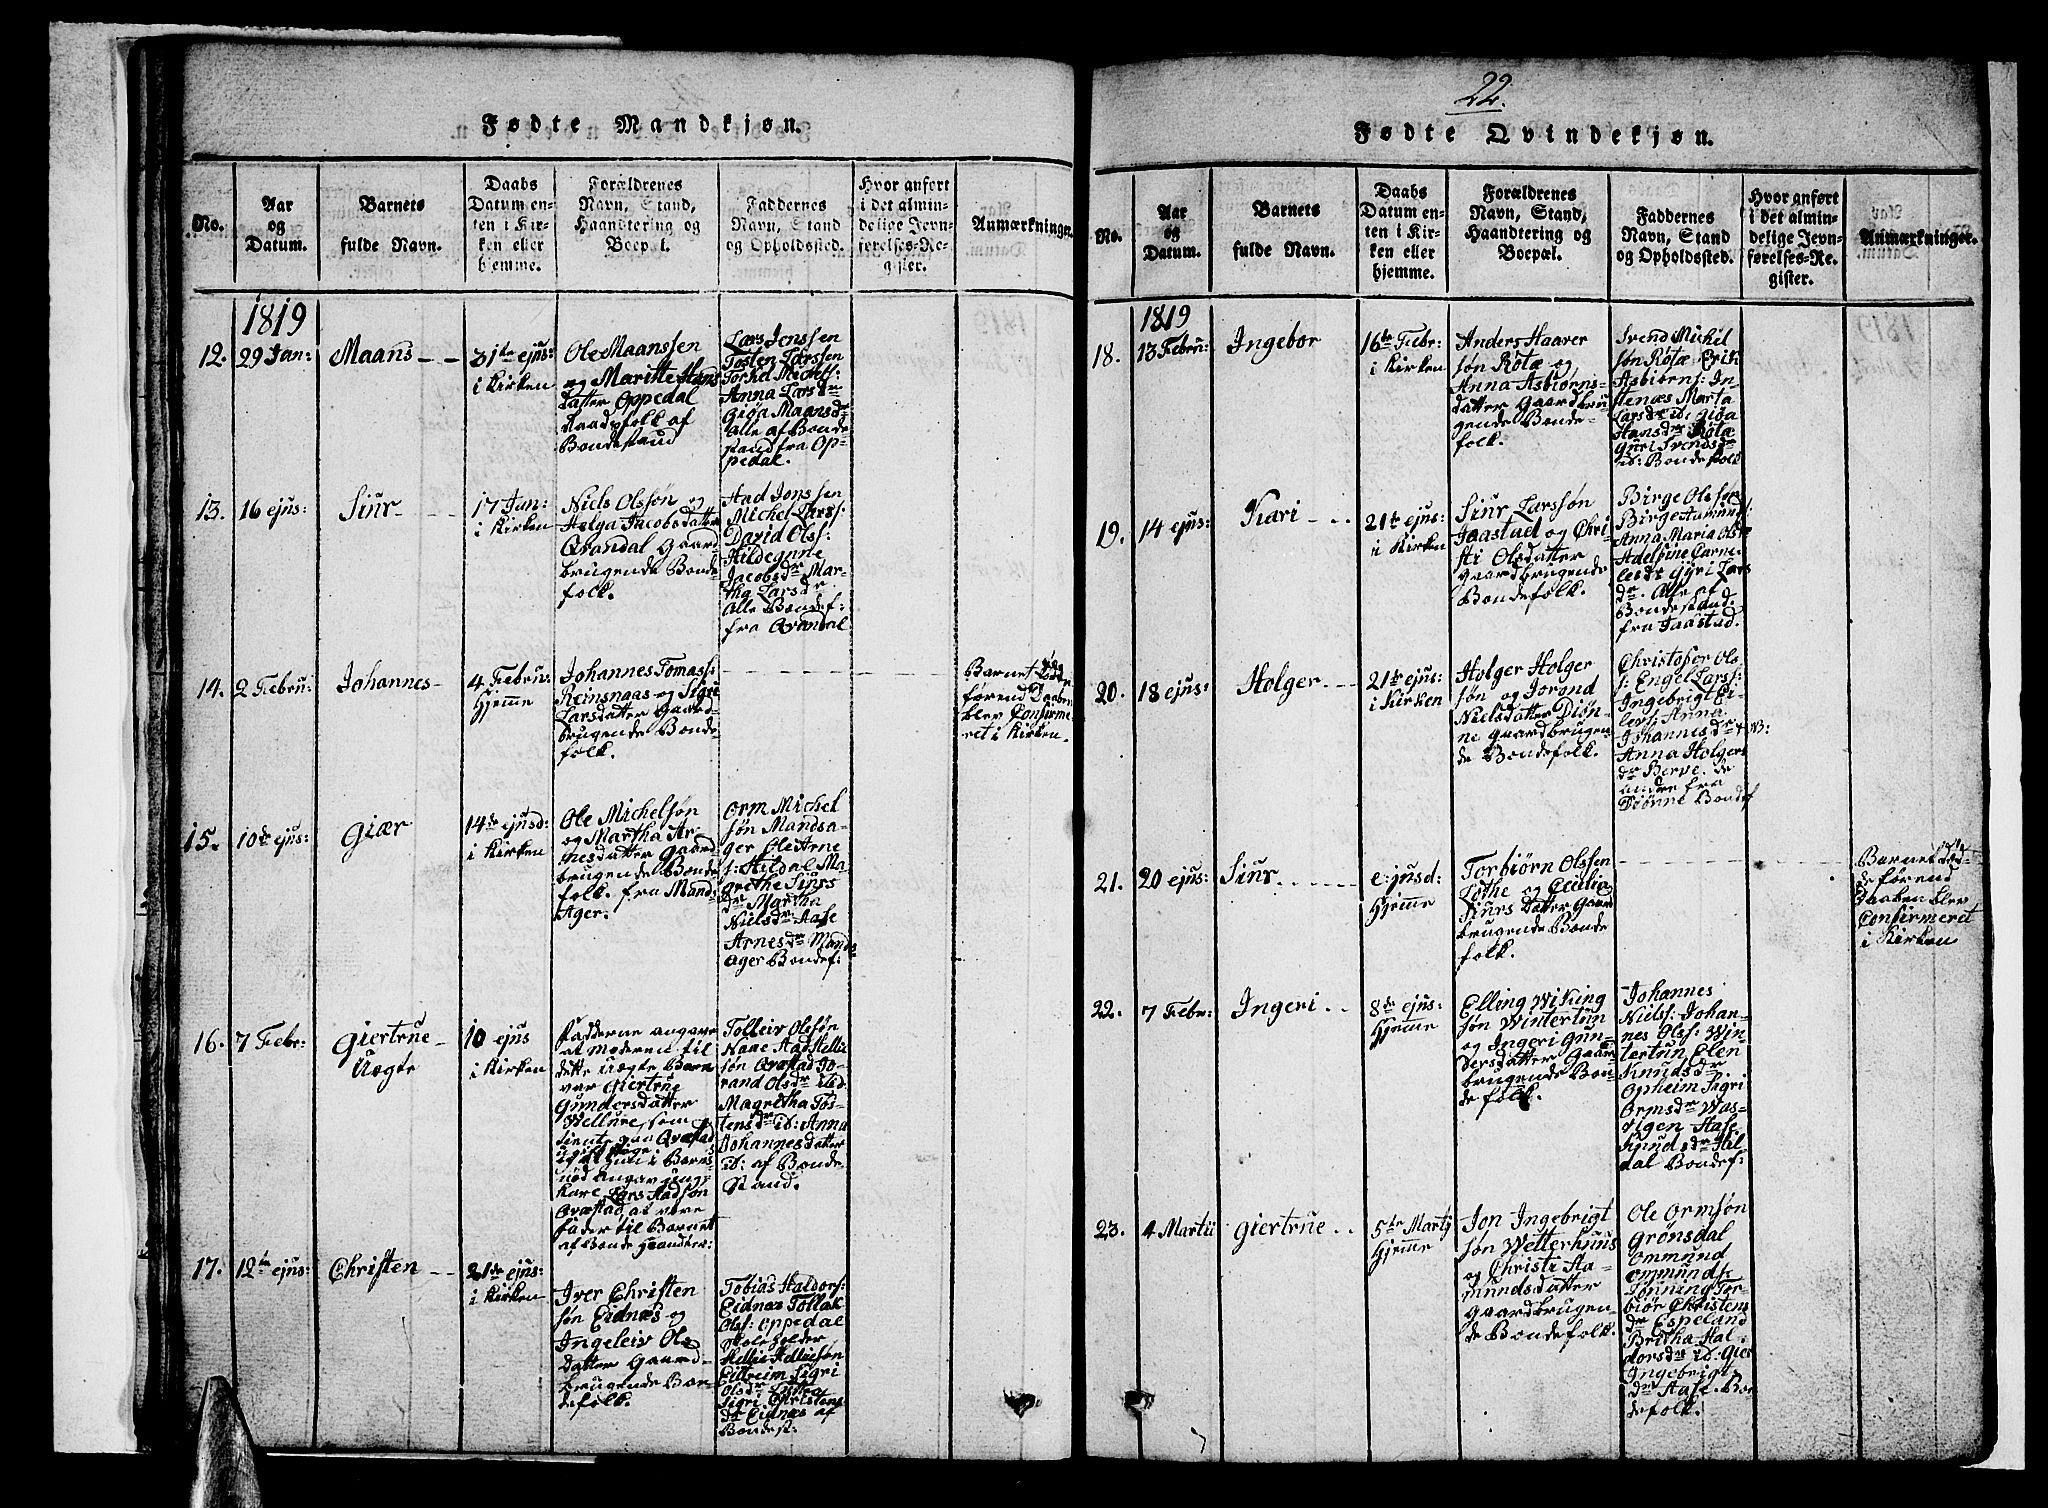 Fødte Mandkjøn.
No.
Aar
og
Datum.
Barnets
fulde Navn.
Daabs
Datum en-
ten i Kir-
ken eller
hjemme.
Forældrenes
Navn, Stand,
Haandtering og
Boepæl.
Faddernes
Navn, Stand
og Opholdssted.
Hvor anført
i det almin-
delige Jevn-
førelses-Re-
gister.
Anmærkninger.
1819
12.
29 Jan:
Maans
31te ejus:
i Kirken
Ole Maanssen
og Maritte Hans
datter Oppedal
Bondestand
Lars Jonssen
Tosten Larssen
Torkel Michels:
Anna Larsdr
Giöa Maansdr
alle af Bonde
stand fra Op-
pedal.
13.
16 ejus:
Siur
17 Jan:
i Kirken
Niels Olssøn og
Helga Jacobsdatter
Qvandal Gaard
brugende Bonde-
folk.
Aad Jonssen
Michel Larss:
David Olss:
Hildegunne
Jacobsdr Mar-
tha Larsdr
Alle Bondef:
fra Qvandal
14.
2 Febru:
Johannes
4 Febru:
Hjemme
Johannes Tomass:
Reinsnaas og Sigri
Larsdatter Gaard-
brugende Bonde
folk.
Barnet døde
förend Daaben
blev Confirme-
ret i Kirken.
15.
10de ejus:
Giær
14de ejusd:
i Kirken
Ole Michelsøn
og Martha Ar-
nesdatter Gaard
brugende Bonde
folk. fra Mand
Ager.
Orm Michel
søn Mandsa-
ger Ole Arne
s: Hildal Ma-
grethe Siurs
dr Martha
Nielsdr Aase
Arnesdr Mands
ager Bondef:
16.
7 Febr:
Giertrue
Uægte
10 ejus
i Kirken
Fadderne angave
at Moderen til
dette uægte Barn
var Giertrue
Gundersdatter
Velure, som
tiente paa Qvæstad
Karl Lars Aadsøn
Qvæstad at være
fader til Barnet
af Bonde Haandter:
Tolleiv Olssøn
Naae Aad Helli
søn Qvæstad Jo-
rand Olsdr ibid
Magretha Tos-
tensdr ib: Anna
Johannesdatter
ib: af Bonde
Stand.
17.
12te ejus:
Christen
21de ejus:
i Kirken
Iver Christen
søn Eidnæs og
Ingeleiv Ols
datter Gaard-
brugende Bon-
defolk.
Tobias Haldors:
Eidnæs Tollak
Olss: Oppedal
Skoleholder
Hellie Helliesøn
Eidreim Sigri
Olsdr
Sigri Christens
dr Eidnæs af
Bondest:
22.
Fødte Qvindekjøn.
No.
Aar
og
Datum.
Barnets
fulde Navn.
Daabs
Datum en-
ten i Kir-
ken eller
hjemme.
Forældrenes
Navn, Stand,
Haandtering og
Boepæl.
Faddernes
Navn, Stand
og Opholdssted.
Hvor anført
i det almin-
delige Jevn-
førelses-Re-
gister.
Anmærkninger.
1819
18.
13 Febru:
Ingebor
16de Febr:
i Kirken
Anders Haaver
søn Røtæ og
Anna Asbiørns-
datter Gaardbru-
gende Bonde-
folk.
Svend Michel
søn Røtæ Erik
Asbiørns: In-
tenæs Marta
Larsdr ib: Giöa
Hansdr Røtæ
Guri Svendsdr
ib: Bondefolk
19.
14 ejus:
Kari
21de ejus:
i Kirken
Siur Larssøn
Jaastad og Chri-
sti Olsdatter
Gaardbrugende
Bondefolk.
Birge Olssen
Birge Aamunds:
Anna Maria Olsdr
Adelsine Carne-
lesdr Gyri Lars
dr. Alle af
Bondestand:
fra Jaastad.
20.
18 ejus:
Holger
21de ejus:
i Kirken
Holger Holger
søn og Jorond
Nielsdatter Diøn-
ne Gaardbrugen-
de Bondefolk.
Christofer Ols
s: Engel Larss:
Ingebrigt Ei-
levs: Anna
Johannesdr
Anna Holgers
dr Berve. de
andre fra
Diønne Bondef
21.
20 ejus:
Siur
ejusd:
Hjemme
Torbiørn Olssen
Lothe og Cecilia
Siurs datter Gaard
brugende Bonde
folk.
Barnet død-
de förend
Daaben blev
Confirmeret
i Kirken
22.
7 Febr:
Ingeri
8de ejus:
Hjemme
Elling Wiking
søn Wintertun
og Ingeri Gun-
dersdatter Gaard
brugende Bon-
defolk.
Johannes
Nielss: Johan-
nes Olss: Win-
tertun, Elen
Knudsdr.
Opheim Sigri
Ormsdr Was-
vigen Aase
Knudsdr Hil-
dal Bondef:
23.
4 Martii
Giertrue
5te Martj
Hjemme
Jon Ingebrigt
søn Wetterhuus
og Christi Aa-
mundsdatter
Gaardbrugen-
de Bondefolk.
Ole Ormsøn
Grønsdal
Ommund
Ommunds:
Jønning Tor-
biør Christens
dr Espeland
Britha Hal-
dorsdr ib: Gier
Ingebrigt
dr Aase. Bon
defolk.